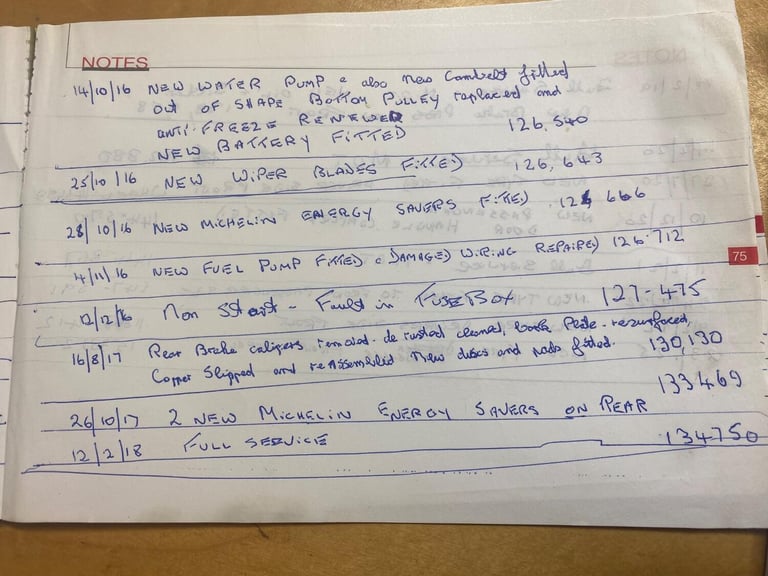 NOTES
14/10/16 NEW WATER PUMP & also New Cambelt fitted
out of SHAPE BOTTOM PULLEY replaced and
ANTI-FREEZE RENEWED
NEW BATTERY FITTED 126,540
25/10/16 NEW WIPER BLADES FITTED 126,643
28/10/16 NEW MICHELIN ENERGY SAVERS FITTED 126 666
4/11/16 NEW FUEL PUMP FITTED & DAMAGED WIRING REPAIRED 126.712
75
12/12/16 Non Start - Fault in FUSE BOX 127-475
16/8/17 Rear Brake calipers removed. de rusted cleaned, resurfaced,
Copper Slipped and reAssembled New discs and pads fitted. 130,130
133469
26/10/17 2 NEW MICHELIN ENERGY SAVERS ON REAR
12/2/18 FULL SERVICE 134750